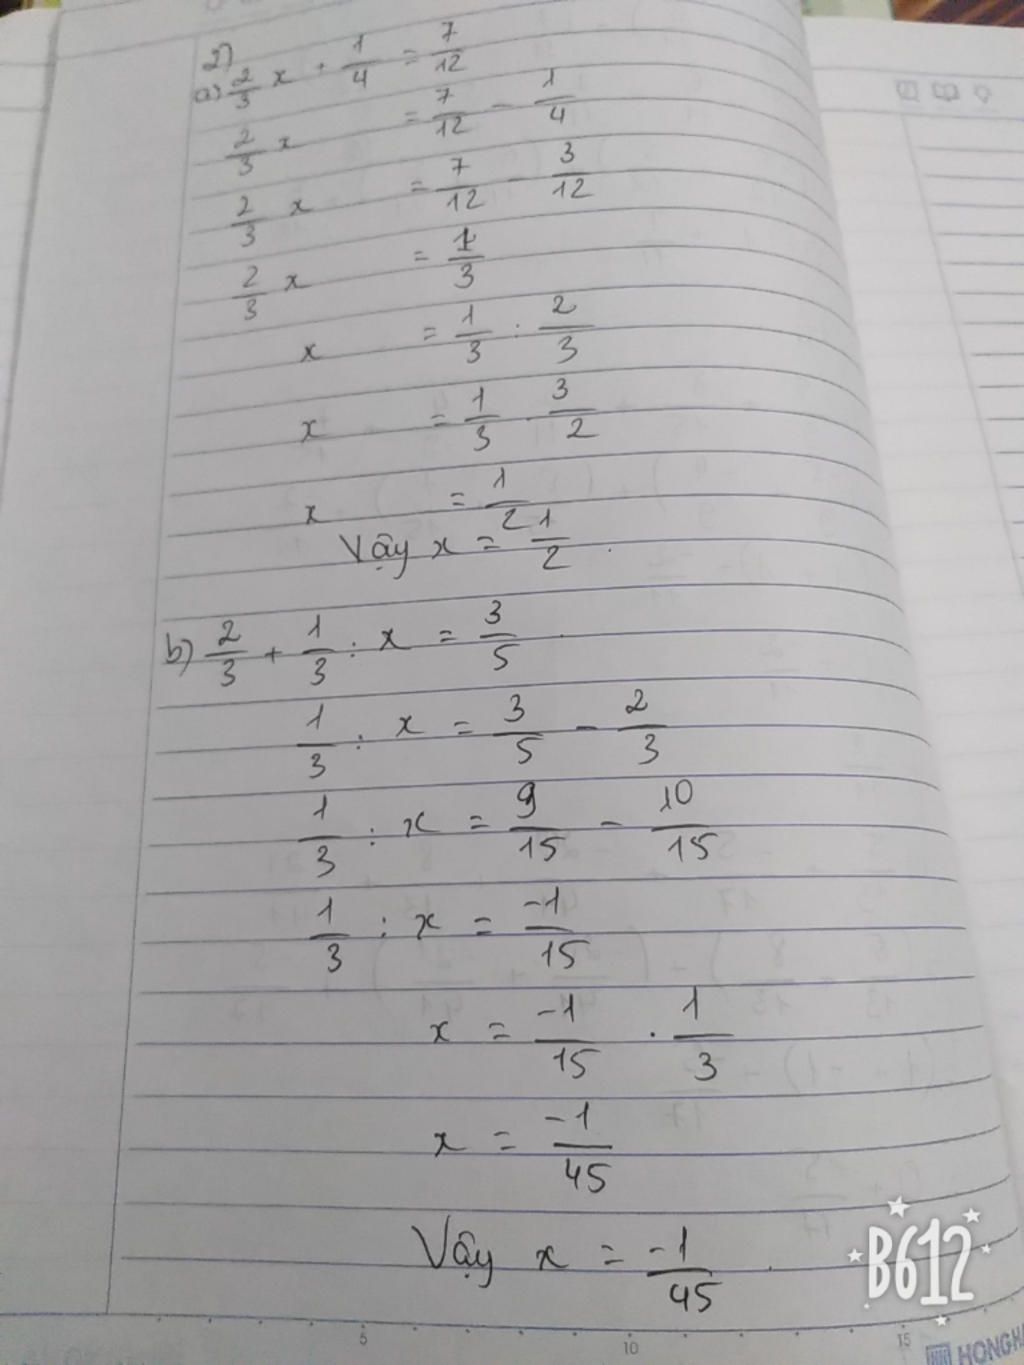 2)
a) 2/3 x + 1/4 = 7/12
2/3 x = 7/12 - 1/4
2/3 x = 7/12 - 3/12
2/3 x = 1/3
x = 1/3 : 2/3
x = 1/3 . 3/2
x = 1/2
Vậy x = 1/2 .
b) 2/3 + 1/3 : x = 3/5
1/3 : x = 3/5 - 2/3
1/3 : x = 9/15 - 10/15
1/3 : x = -1/15
x = -1/15 . 1/3
x = -1/45
Vậy x = -1/45 .
B612
5 10 15